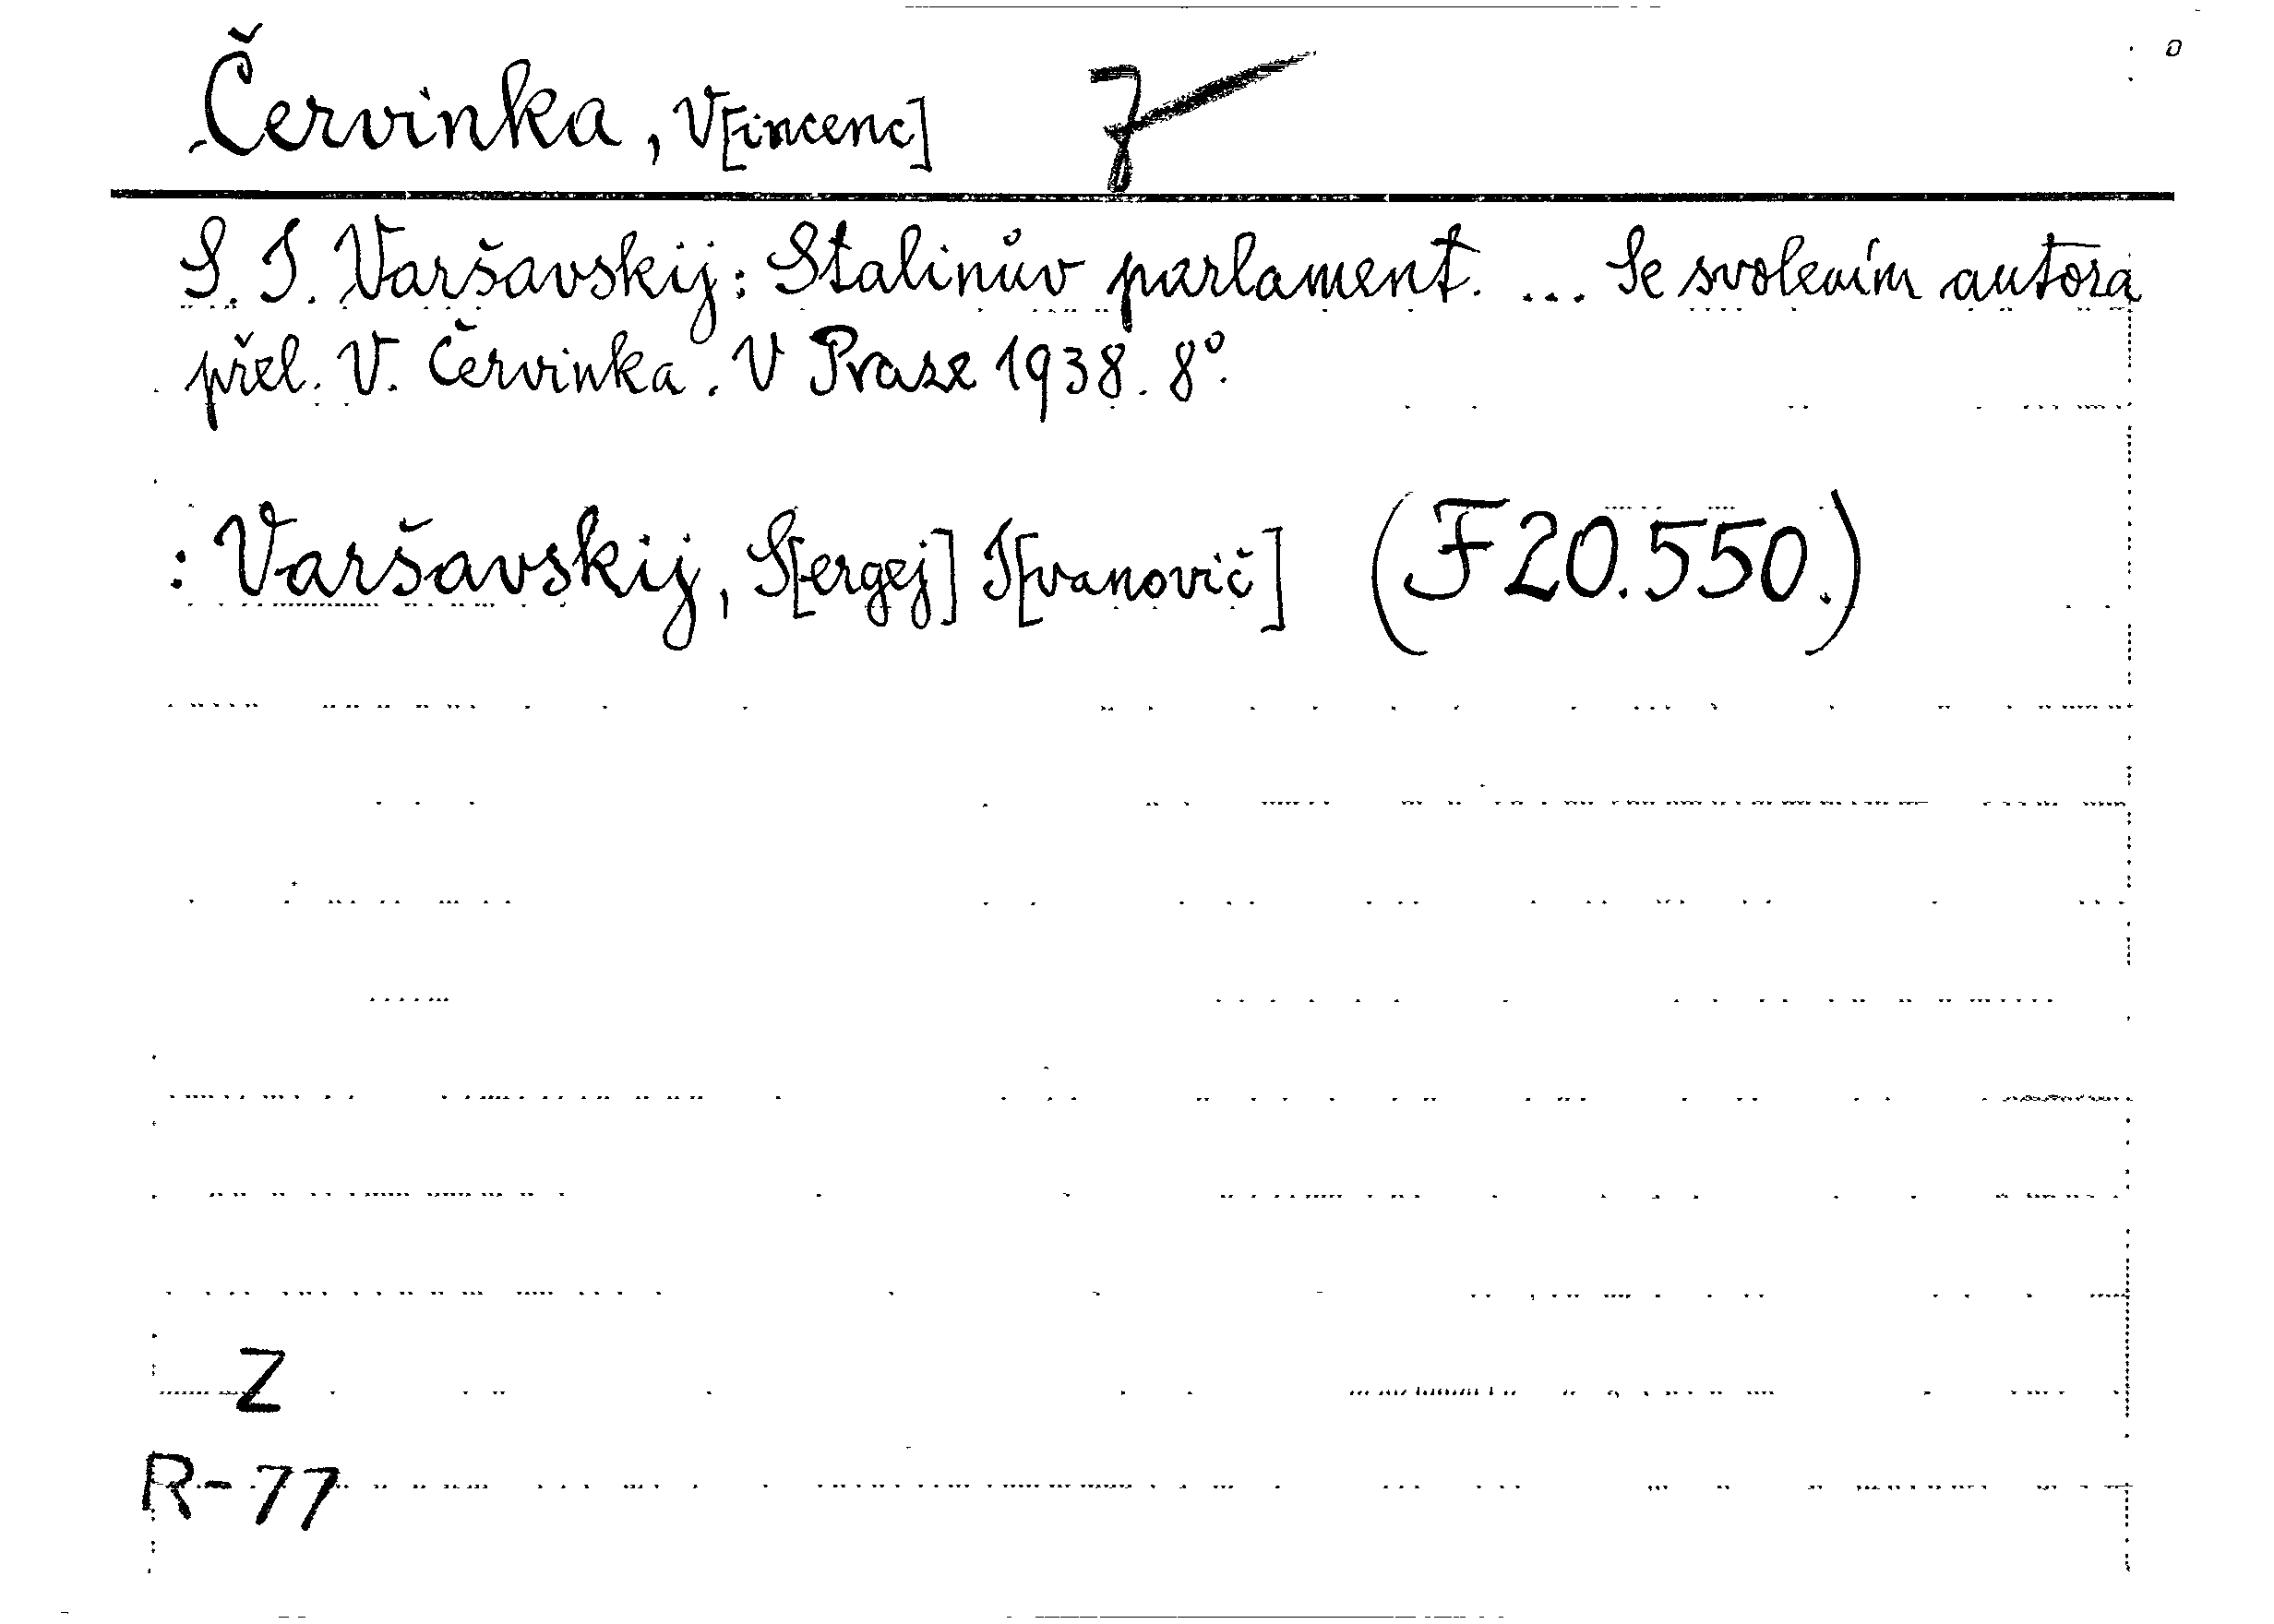 Červinka, V[incenc] 7
S. I. Varšavskij: Stalinův parlament. ... Se svolením autora
přel. V. Červinka. V Praze 1938. 8°.
: Varšavskij, S[ergej] I[vanovič] (F 20.550.)
Z
R-77